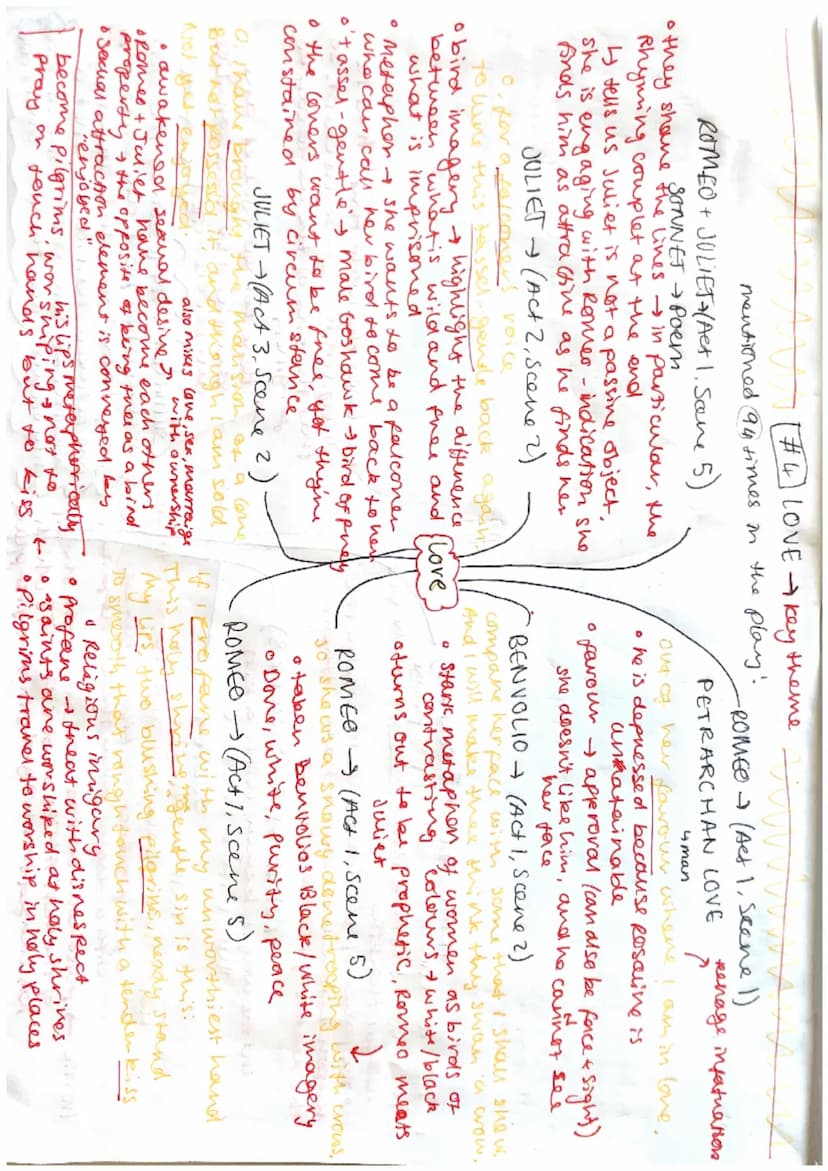 #4 LOVE → key theme
mentioned 94 times in the play!
ROMEO + JULIET → (Act 1, Scene 5)
SONNET → Poem
• they share the lines → in particular, the
rhyming couplet at the end
↳ tells us Juliet is not a passive object,
she is engaging with Romeo - indication she
finds him as attractive as he finds her
JULIET → (Act 2, Scene 2)
O, for a falconer's voice
To lure this tassel-gentle back again.
• bird imagery → highlight the difference
between what is wild and free and
what is imprisoned
• Metaphor → she wants to be a falconer
who can call her bird to come back to her
• 'tassel-gentle' → male Goshawk → bird of prey
• the lovers want to be free, yet they're
constrained by circumstance
JULIET → (Act 3, Scene 2)
O, I have brought the mansion of a love
But not possess'd it, and though I am sold
Not yet enjoyed.
also mixes love, sex, marraige
with ownership
• awakened sexual desire ↗
• Romeo + Juliet have become each others
property → the opposite of being free as a bird
• sexual attraction element is conveyed by
"enjoyed"
his lips metaphorically
become pilgrims, worshiping → not to
pray or touch hands but to kiss ←
Love
ROMEO → (Act 1, Scene 1)
PETRARCHAN LOVE
↳ man
teenage infatuation
Out of her favour where I am in love.
• he is depressed because rosaline is
unatainable
• favour → approval (can also be face + sight)
she doesn't like him, and he cannot see
her face
BENVOLIO → (Act 1, Scene 2)
compare her face with some that I shall show,
And I will make thee think thy swan a crow.
• Stark metaphor of women as birds of
contrasting colours → white/black
• turns out to be prophetic, Romeo meets
Juliet
ROMEO → (Act 1, Scene 5)
So shows a snowy dove trooping with crows,
• taken Benvolios Black/white imagery
• Dove, white, purity, peace
ROMEO → (Act 1, Scene 5)
If I profane with my unworthiest hand
This holy shrine, the gentle sin is this:
My lips two blushing pilgrims, ready stand
To smooth that rough touch with a tender kiss
• Religious imigary
• profane → treat with disrespect
• saints are worshiped at holy shrines
• pilgrims travel to worship in holy places